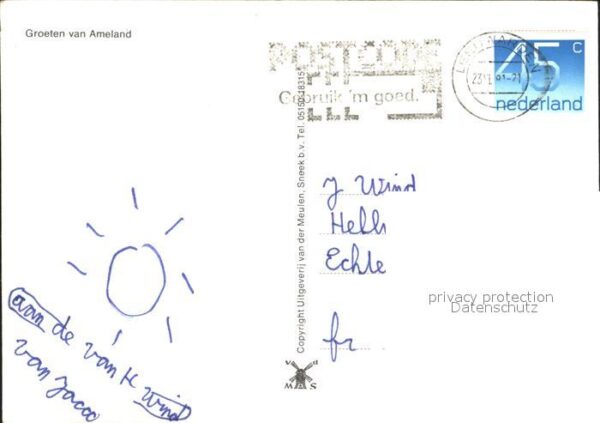 Groeten van Ameland
POSTCODE
Gebruik 'm goed.
LEEUWARDEN
45 c
nederland
Copyright Uitgeverij van der Meulen, Sneek b.v. Tel. 05150-28315
J Wind
Echte
fr
privacy protection
Datenschutz
aan de van H Wind
van Jacco
V M
M S